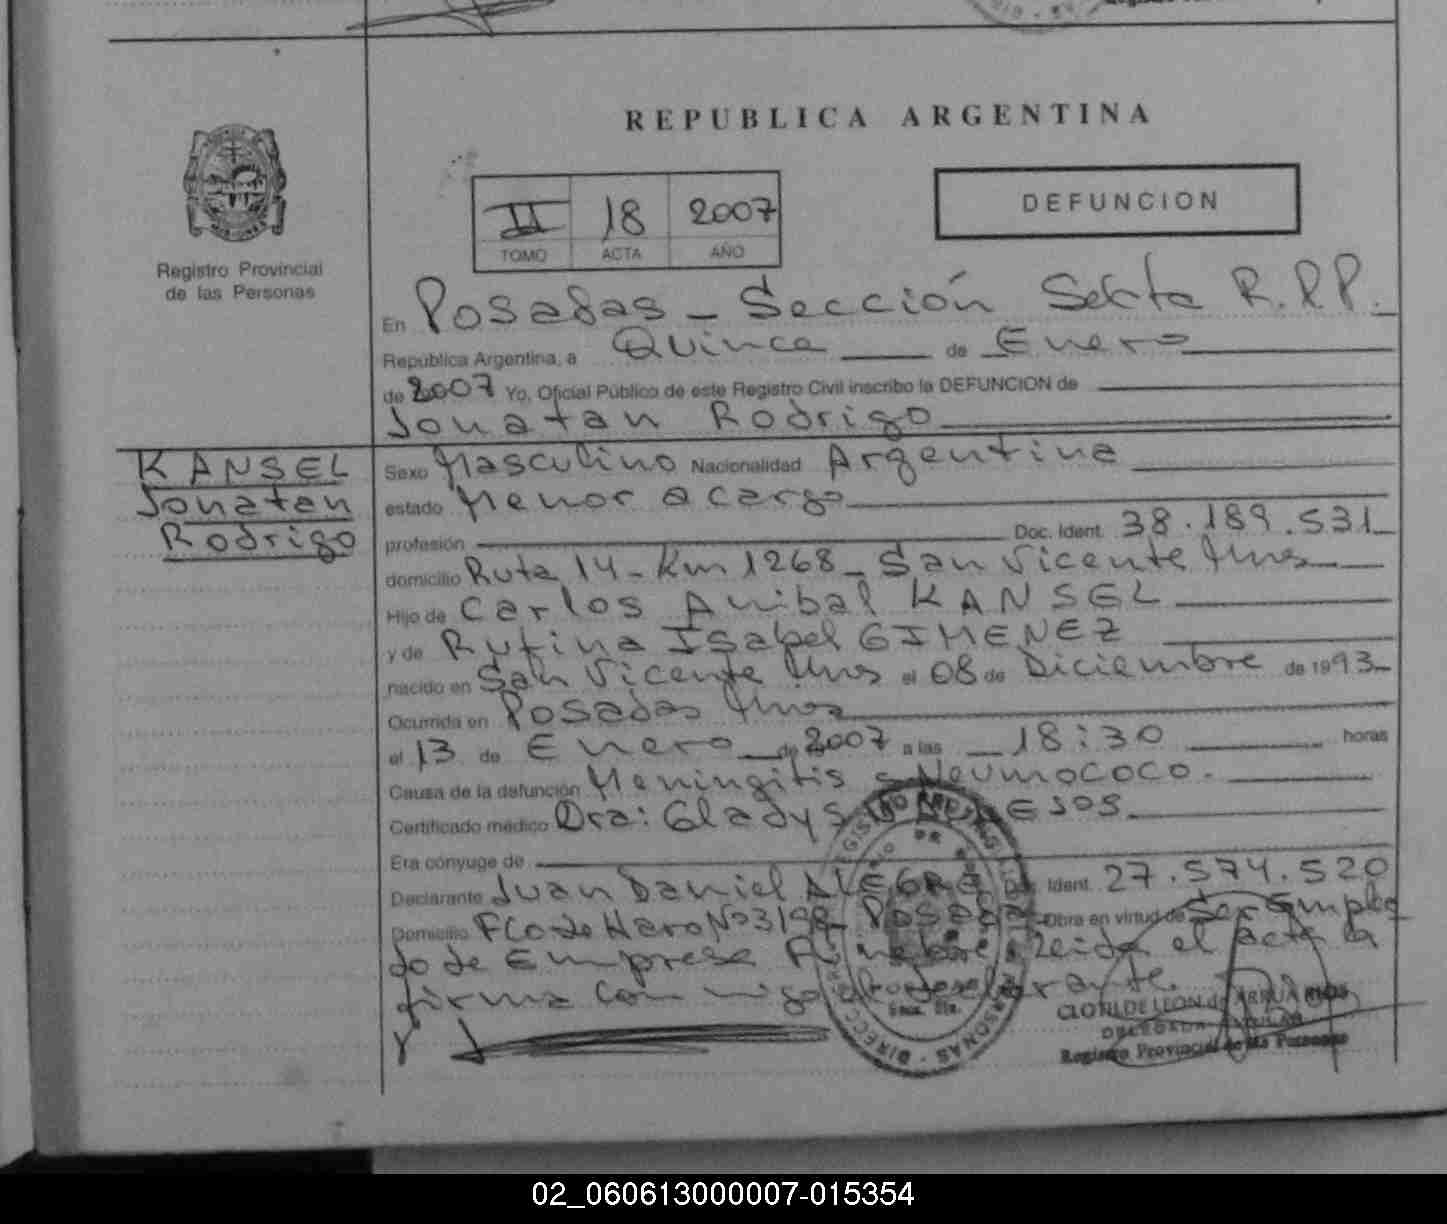 REPUBLICA ARGENTINA
II 18 2007
TOMO ACTA AÑO
DEFUNCION
Registro Provincial
de las Personas
En Posadas - Sección Sexta R.P.P.
República Argentina, a Quince de Enero
de 2007 Yo, Oficial Público de este Registro Civil inscribo la DEFUNCION de
Jonatan Rodrigo
KANSEL
Jonatan
Rodrigo
Sexo Masculino Nacionalidad Argentina
estado Menor a cargo
profesión Doc. Ident. 38.189.531
domicilio Ruta 14 - Km 1268 - San Vicente Mnes
Hijo de Carlos Anibal KANSEL
y de Rufina Isabel GIMENEZ
nacido en San Vicente Mnes el 08 de Diciembre de 1993
Ocurrida en Posadas Mnes
el 13 de Enero de 2007 a las 18:30 horas
Causa de la defunción Meningitis Neumococo.
Certificado médico Dra: Gladys
Era cónyuge de
Declarante Juan Daniel ALEGRE Doc. Ident. 27.574.520
Domicilio Fco de Haro Nº 3198 Posadas Obra en virtud de Ser Emplea
do de Empresa Fúnebre Leida el acta la
firma conmigo el declarante.
CLOTILDE LEON de ARRUA RIOS
DELEGADA TITULAR
Registro Provincial de las Personas
02_060613000007-015354